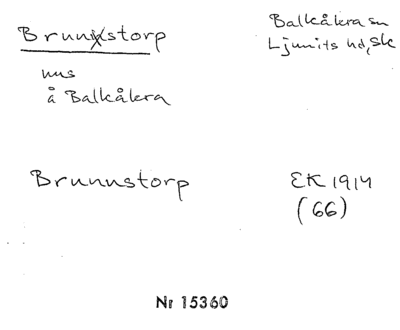 Brunnstorp
Balkåkra sn
Ljunits hd, Sk
hus
å Balkåkra
Brunnstorp
EK 1914
(66)
Nr 15360